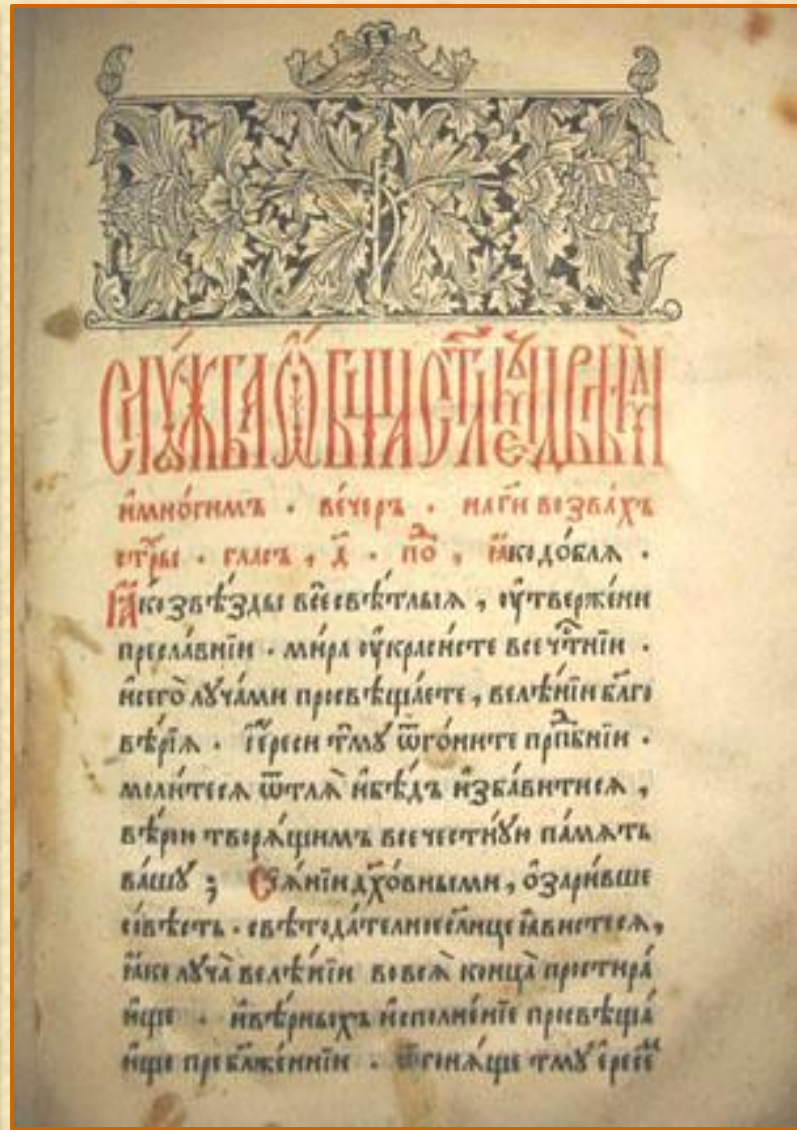 СЛУ́ЖБА ѾБЩАЯ СТ҃ЛЕМЪ ДВѢМА
и҆мно́гимъ · ве́черъ · на ги҃ возва́хъ
стⷯры · гласъ , д҃ · поⷣ , ꙗ҆кодо́блѧ ·
Ꙗ҆́козвѣ́зды всѐсвѣ́тлыѧ , оу҆тверже́ни
пресла́внїи · ми́ра оу҆краси́сте всечⷭ҇тні́и ·
и҆сего̀ лꙋча́ми просвѣща́ете , велѣ́нїи бл҃го
вѣ́рїѧ · і҆́ереси тмꙋ̀ ѿгони́те прпⷣбнїи ·
моли́тесѧ ѿтлѧ̀ и҆бѣ́дъ и҆зба́витисѧ ,
вѣ́рою творѧ́щимъ всечестнꙋ́ю па́мѧть
ва́шꙋ ; Сїѧ́нїи дх҃о́вными , ѡ҆зари́вше
со́вѣсть · свѣтода́телное сл҃нце ꙗ҆ви́стесѧ ,
ꙗ҆́ко лꙋча̀ велѣ́нїи вовсѧ̀ конца̀ простира́
ю҆ще · и҆вѣ́рныхъ и҆сполне́нїе просвѣща́
ю҆ще пребл҃же́ннїи · ѿгонѧ́ще тмꙋ̀ є҆ресе́ⷨ